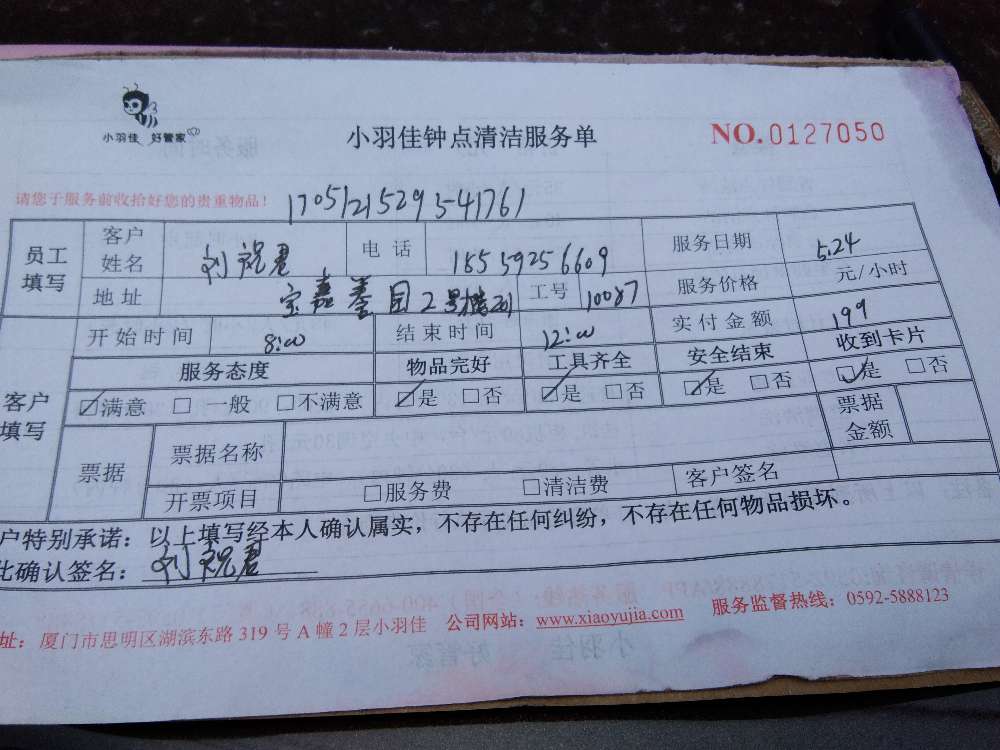 小羽佳 好管家
小羽佳钟点清洁服务单
NO.0127050
请您于服务前收拾好您的贵重物品！
1705121529541761
员工填写 客户姓名 刘祝君 电话 18559256609 服务日期 5.24
地址 宝嘉誉园2号楼 工号 10087 服务价格 元/小时
开始时间 8:00 结束时间 12:00 实付金额 199
客户填写 服务态度 物品完好 工具齐全 安全结束 收到卡片
☑满意 □一般 □不满意 ☑是 □否 ☑是 □否 ☑是 □否 ☑是 □否
票据 票据名称 票据金额
开票项目 □服务费 □清洁费 客户签名
户特别承诺：以上填写经本人确认属实，不存在任何纠纷，不存在任何物品损坏。
此确认签名：刘祝君
址：厦门市思明区湖滨东路319号A幢2层小羽佳 公司网站：www.xiaoyujia.com 服务监督热线：0592-5888123